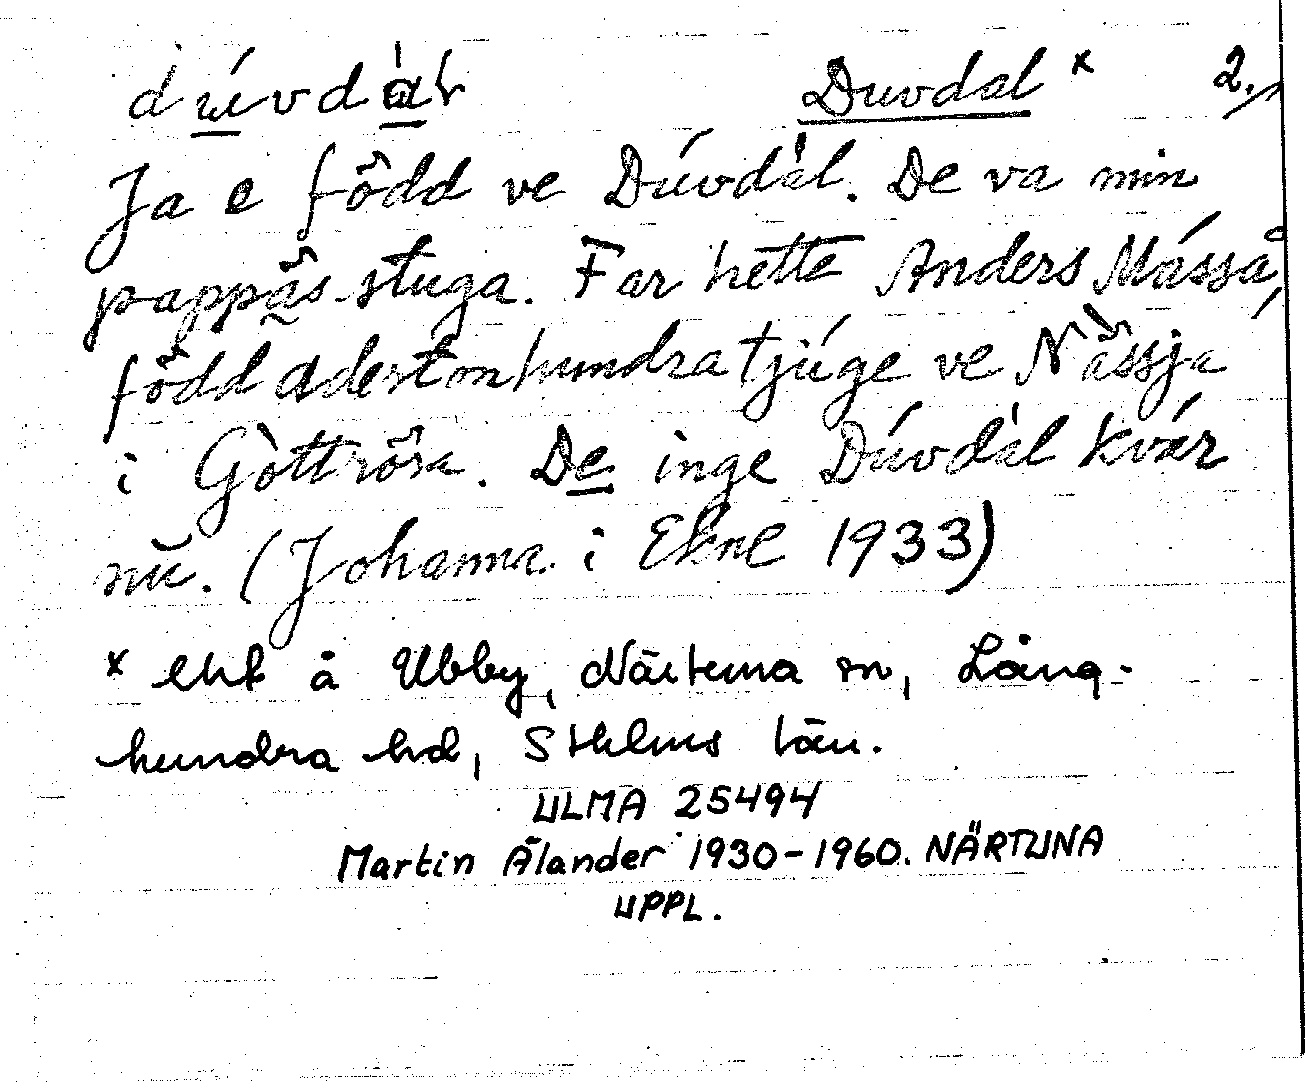 dúvdàl Duvdal x 2.
Ja e född ve Dúvdàl. De va min
pappas stuga. Far hette Anders Mássa,
född adertonhundratjúge ve Nàssja
i Gòttröra. De inge Dúvdàl kvár
nu. (Johanna i Ekne 1933)
x lht å Ubby, Närtuna sn, Lång-
hundra hd, Sthlms län.
ULMA 25494
Martin Ålander 1930-1960. NÄRTUNA
UPPL.